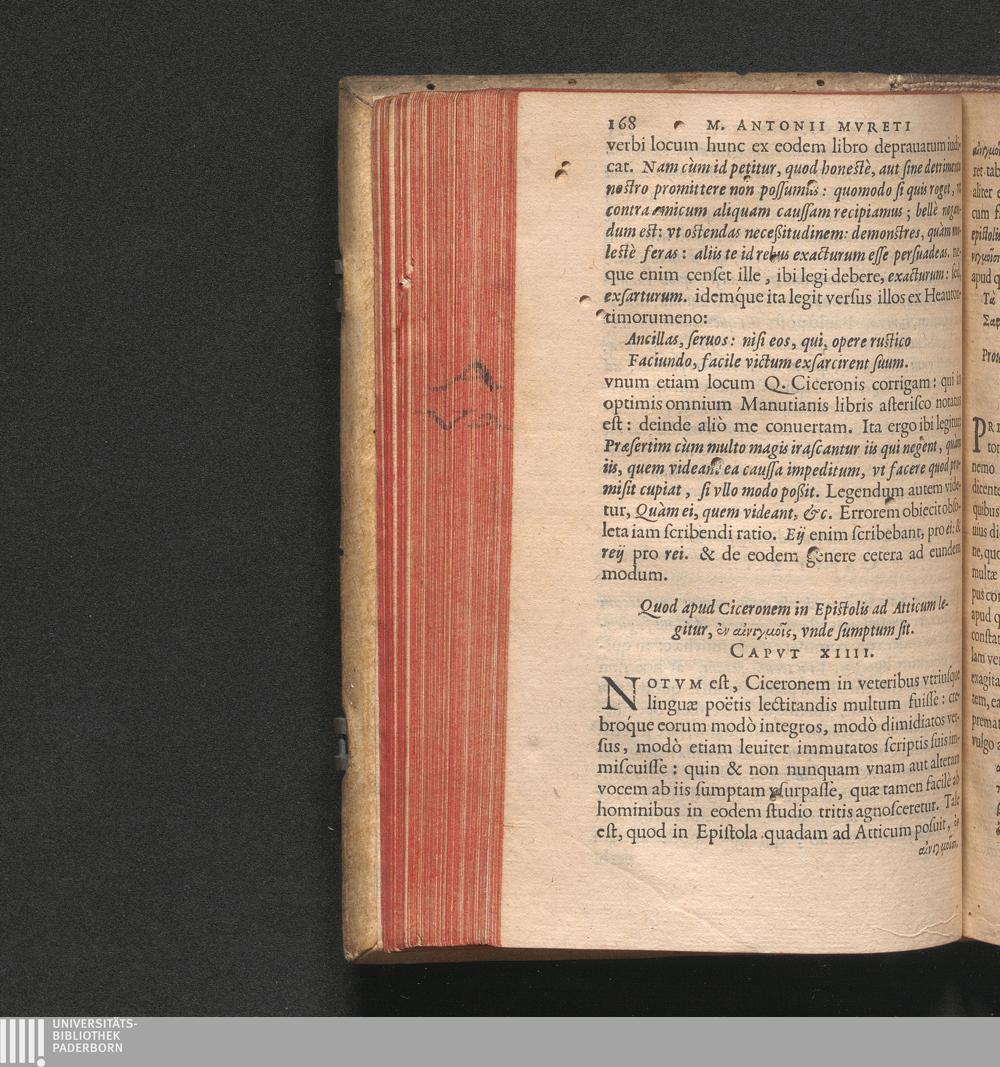 168 M. ANTONII MVRETI
verbi locum hunc ex eodem libro deprauatum iudi-
cat. Nam cùm id petitur, quod honestè, aut sine detrimento
nostro promittere non possumus: quomodo si quis roget, vt
contra amicum aliquam caussam recipiamus; bellè negan-
dum est: vt ostendas necessitudinem: demonstres, quàm mo-
lestè feras: aliis te id rebus exacturum esse persuadeas. ne-
que enim censet ille, ibi legi debere, exacturum: sed,
exsarturum. idemq́ue ita legit versus illos ex Heauton-
timorumeno:
Ancillas, seruos: nisi eos, qui, opere rustico
Faciundo, facile victum exsarcirent suum.
vnum etiam locum Q. Ciceronis corrigam: qui in
optimis omnium Manutianis libris asterisco notatus
est: deinde aliò me conuertam. Ita ergo ibi legitur:
Præsertim cùm multo magis irascantur iis qui negent, quàm
iis, quem videant ea caussa impeditum, vt facere quod pro-
misit cupiat, si vllo modo possit. Legendum autem vide-
tur, Quàm ei, quem videant, &c. Errorem obiecit obso-
leta iam scribendi ratio. Eij enim scribebant, pro ei: &
reij pro rei. & de eodem genere cetera ad eundem
modum.
Quod apud Ciceronem in Epistolis ad Atticum le-
gitur, ἐν αἰνιγμοῖς, vnde sumptum sit.
CAPVT XIIII.
NOTVM est, Ciceronem in veteribus vtriusque
linguæ poëtis lectitandis multum fuisse: cre-
broq́ue eorum modò integros, modò dimidiatos ver-
sus, modò etiam leuiter immutatos scriptis suis im-
miscuisse: quin & non nunquam vnam aut alteram
vocem ab iis sumptam vsurpasse, quæ tamen facilè ab
hominibus in eodem studio tritis agnosceretur. Tale
est, quod in Epistola quadam ad Atticum posuit, ἐν
αἰνιγμοῖσι.
ret tab
aliter e
epistolis
apud q
Τὰ
PRI
nemo
dicent
quibus
multæ
apud q
constat
exagita
vulgo a
UNIVERSITÄTS-
BIBLIOTHEK
PADERBORN